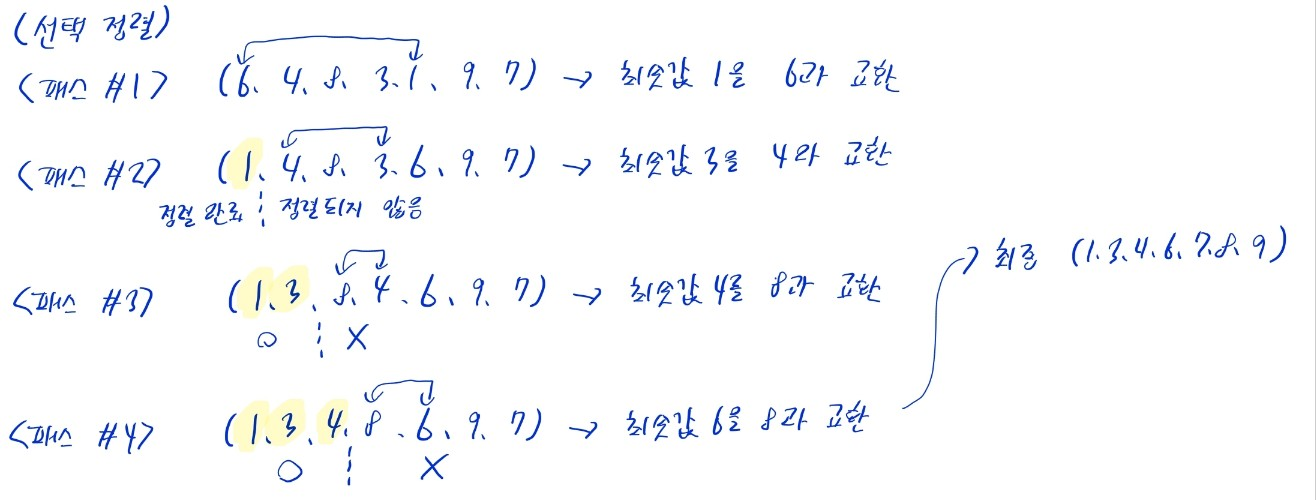 (선택 정렬)
<패스 #1> (6, 4, 8, 3, 1, 9, 7) → 최솟값 1을 6과 교환
<패스 #2> (1, 4, 8, 3, 6, 9, 7) → 최솟값 3을 4와 교환
정렬 완료 정렬되지 않음
<패스 #3> (1, 3, 8, 4, 6, 9, 7) → 최솟값 4를 8과 교환
O X
<패스 #4> (1, 3, 4, 8, 6, 9, 7) → 최솟값 6을 8과 교환
O X
→ 최종 (1, 3, 4, 6, 7, 8, 9)